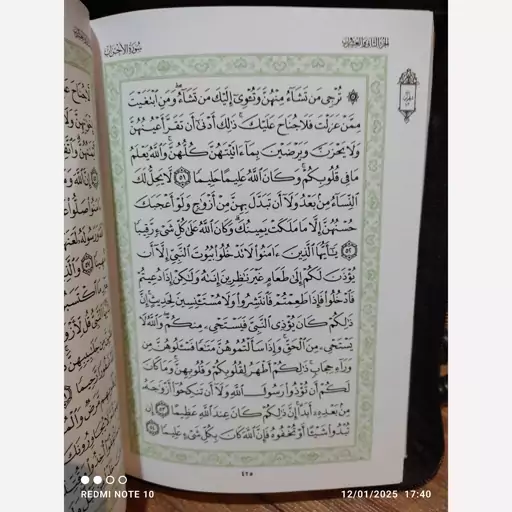 الجزء الثاني والعشرون
سورة الأحزاب
۞ تُرْجِي مَن تَشَآءُ مِنْهُنَّ وَتُـْٔوِيٓ إِلَيْكَ مَن تَشَآءُۖ وَمَنِ ٱبْتَغَيْتَ
مِمَّنْ عَزَلْتَ فَلَا جُنَاحَ عَلَيْكَۚ ذَٰلِكَ أَدْنَىٰٓ أَن تَقَرَّ أَعْيُنُهُنَّ
وَلَا يَحْزَنَّ وَيَرْضَيْنَ بِمَآ ءَاتَيْتَهُنَّ كُلُّهُنَّۚ وَٱللَّهُ يَعْلَمُ
مَا فِي قُلُوبِكُمْۚ وَكَانَ ٱللَّهُ عَلِيمًا حَلِيمًا ٥١ لَّا يَحِلُّ لَكَ
ٱلنِّسَآءُ مِنۢ بَعْدُ وَلَآ أَن تَبَدَّلَ بِهِنَّ مِنْ أَزْوَٰجٍ وَلَوْ أَعْجَبَكَ
حُسْنُهُنَّ إِلَّا مَا مَلَكَتْ يَمِينُكَۗ وَكَانَ ٱللَّهُ عَلَىٰ كُلِّ شَيْءٍ رَّقِيبًا
٥٢ يَٰٓأَيُّهَا ٱلَّذِينَ ءَامَنُوا۟ لَا تَدْخُلُوا۟ بُيُوتَ ٱلنَّبِيِّ إِلَّآ أَن
يُؤْذَنَ لَكُمْ إِلَىٰ طَعَامٍ غَيْرَ نَٰظِرِينَ إِنَىٰهُ وَلَٰكِنْ إِذَا دُعِيتُمْ
فَٱدْخُلُوا۟ فَإِذَا طَعِمْتُمْ فَٱنتَشِرُوا۟ وَلَا مُسْتَـْٔنِسِينَ لِحَدِيثٍۚ إِنَّ
ذَٰلِكُمْ كَانَ يُؤْذِي ٱلنَّبِيَّ فَيَسْتَحْيِۦ مِنكُمْۖ وَٱللَّهُ لَا
يَسْتَحْيِۦ مِنَ ٱلْحَقِّۚ وَإِذَا سَأَلْتُمُوهُنَّ مَتَٰعًا فَسْـَٔلُوهُنَّ مِن
وَرَآءِ حِجَابٍۚ ذَٰلِكُمْ أَطْهَرُ لِقُلُوبِكُمْ وَقُلُوبِهِنَّۚ وَمَا كَانَ
لَكُمْ أَن تُؤْذُوا۟ رَسُولَ ٱللَّهِ وَلَآ أَن تَنكِحُوٓا۟ أَزْوَٰجَهُۥ
مِنۢ بَعْدِهِۦٓ أَبَدًاۚ إِنَّ ذَٰلِكُمْ كَانَ عِندَ ٱللَّهِ عَظِيمًا ٥٣ إِن
تُبْدُوا۟ شَيْـًٔا أَوْ تُخْفُوهُ فَإِنَّ ٱللَّهَ كَانَ بِكُلِّ شَيْءٍ عَلِيمًا ٥٤
٤٢٥
REDMI NOTE 10
12/01/2025 17:40